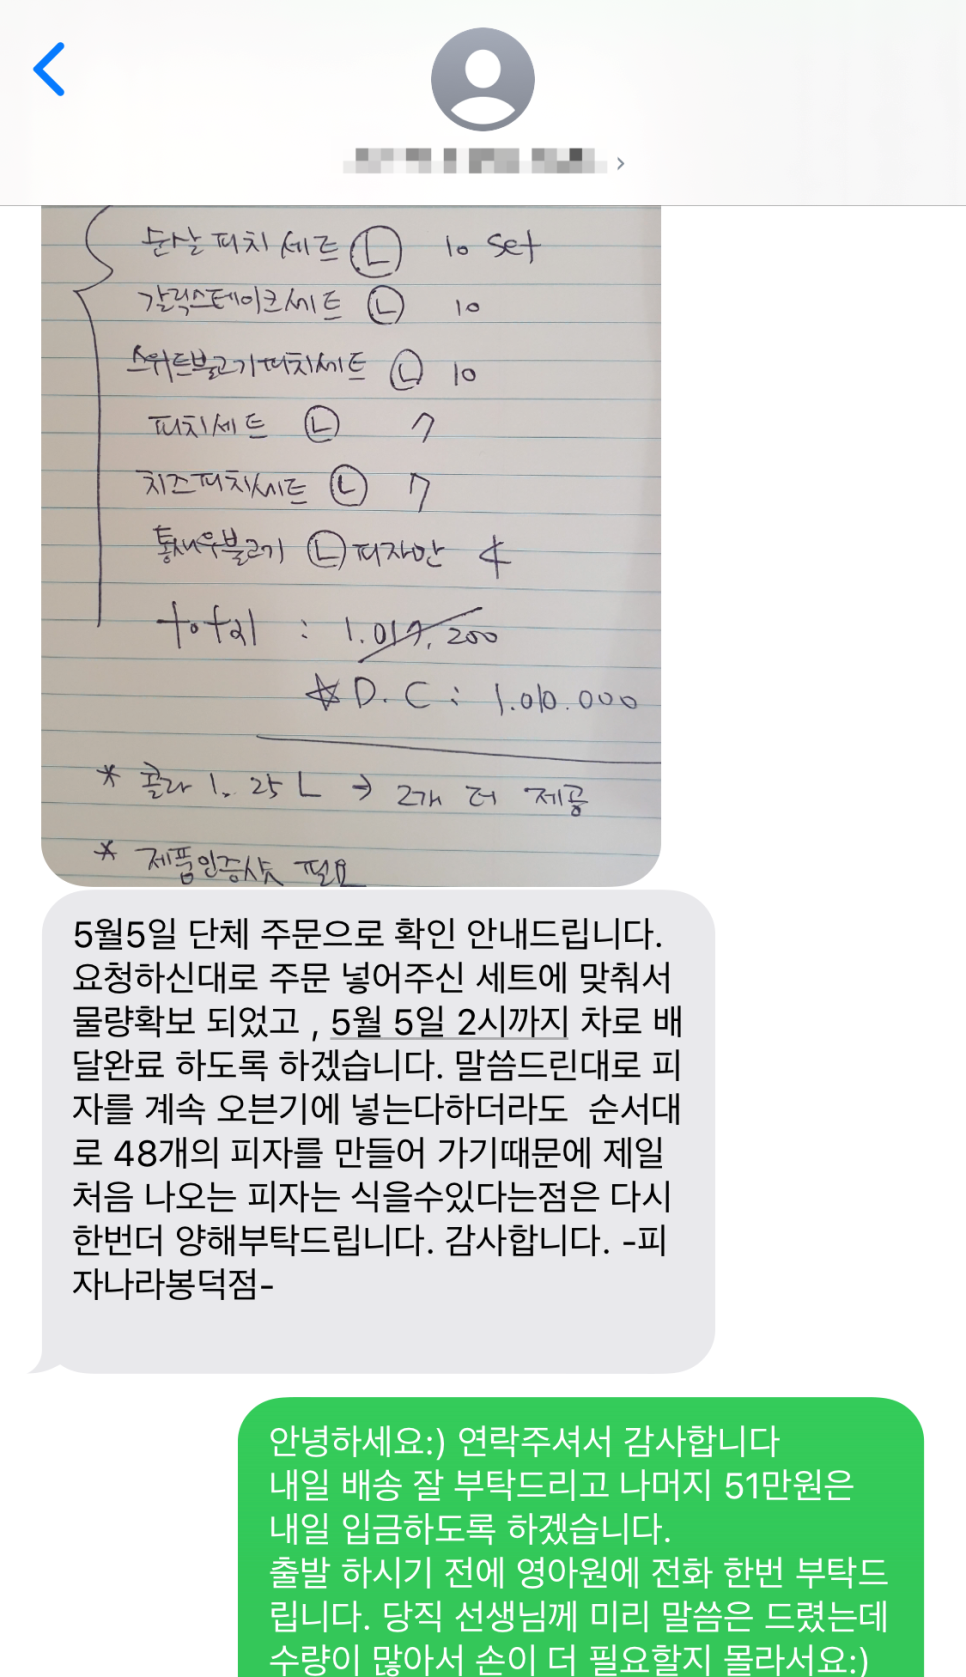 순살피치세트 Ⓛ 10 set
갈릭스테이크세트 Ⓛ 10
스위트불고기피치세트 Ⓛ 10
피치세트 Ⓛ 7
치즈피치세트 Ⓛ 7
통새우불고기 Ⓛ 피자만 4
total : 1.017.200
☆ D.C : 1.010.000
* 콜라 1.25L → 2개 더 제공
* 제품인증샷 필요
5월5일 단체 주문으로 확인 안내드립니다.
요청하신대로 주문 넣어주신 세트에 맞춰서
물량확보 되었고 , 5월 5일 2시까지 차로 배
달완료 하도록 하겠습니다. 말씀드린대로 피
자를 계속 오븐기에 넣는다하더라도 순서대
로 48개의 피자를 만들어 가기때문에 제일
처음 나오는 피자는 식을수있다는점은 다시
한번더 양해부탁드립니다. 감사합니다. -피
자나라봉덕점-
안녕하세요:) 연락주셔서 감사합니다
내일 배송 잘 부탁드리고 나머지 51만원은
내일 입금하도록 하겠습니다.
출발 하시기 전에 영아원에 전화 한번 부탁드
립니다. 당직 선생님께 미리 말씀은 드렸는데
수량이 많아서 손이 더 필요할지 몰라서요:)